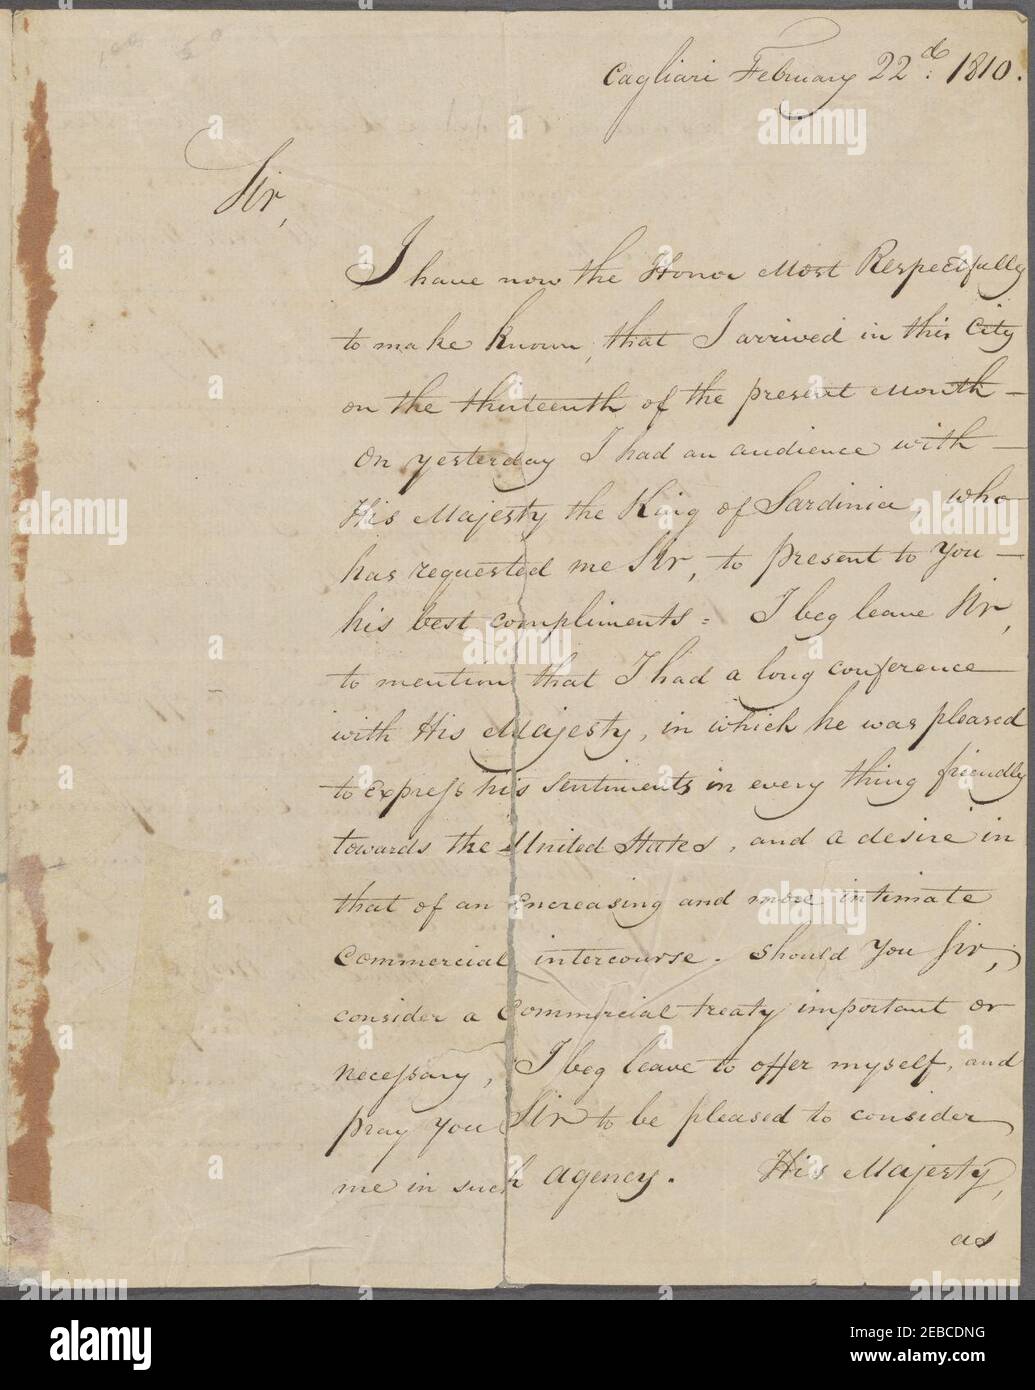 Cagliari February 22d. 1810.
Sir,
I have now the Honor Most Respectfully
to make known, that I arrived in this City
on the thirteenth of the present Month—
On yesterday I had an audience with—
His Majesty the King of Sardinia, who—
has requested me Sir, to present to You—
his best compliments = I beg leave Sir,
to mention that I had a long conference
with His Majesty, in which he was pleased
to express his sentiments in every thing friendly
towards the United States, and a desire in
that of an encreasing and more intimate
commercial intercourse. Should You Sir,
consider a Commercial treaty important or
necessary, I beg leave to offer myself, and
pray You Sir to be pleased to consider
me in such agency. His Majesty,
as
alamy
Image ID: 2EBCDNG
www.alamy.com